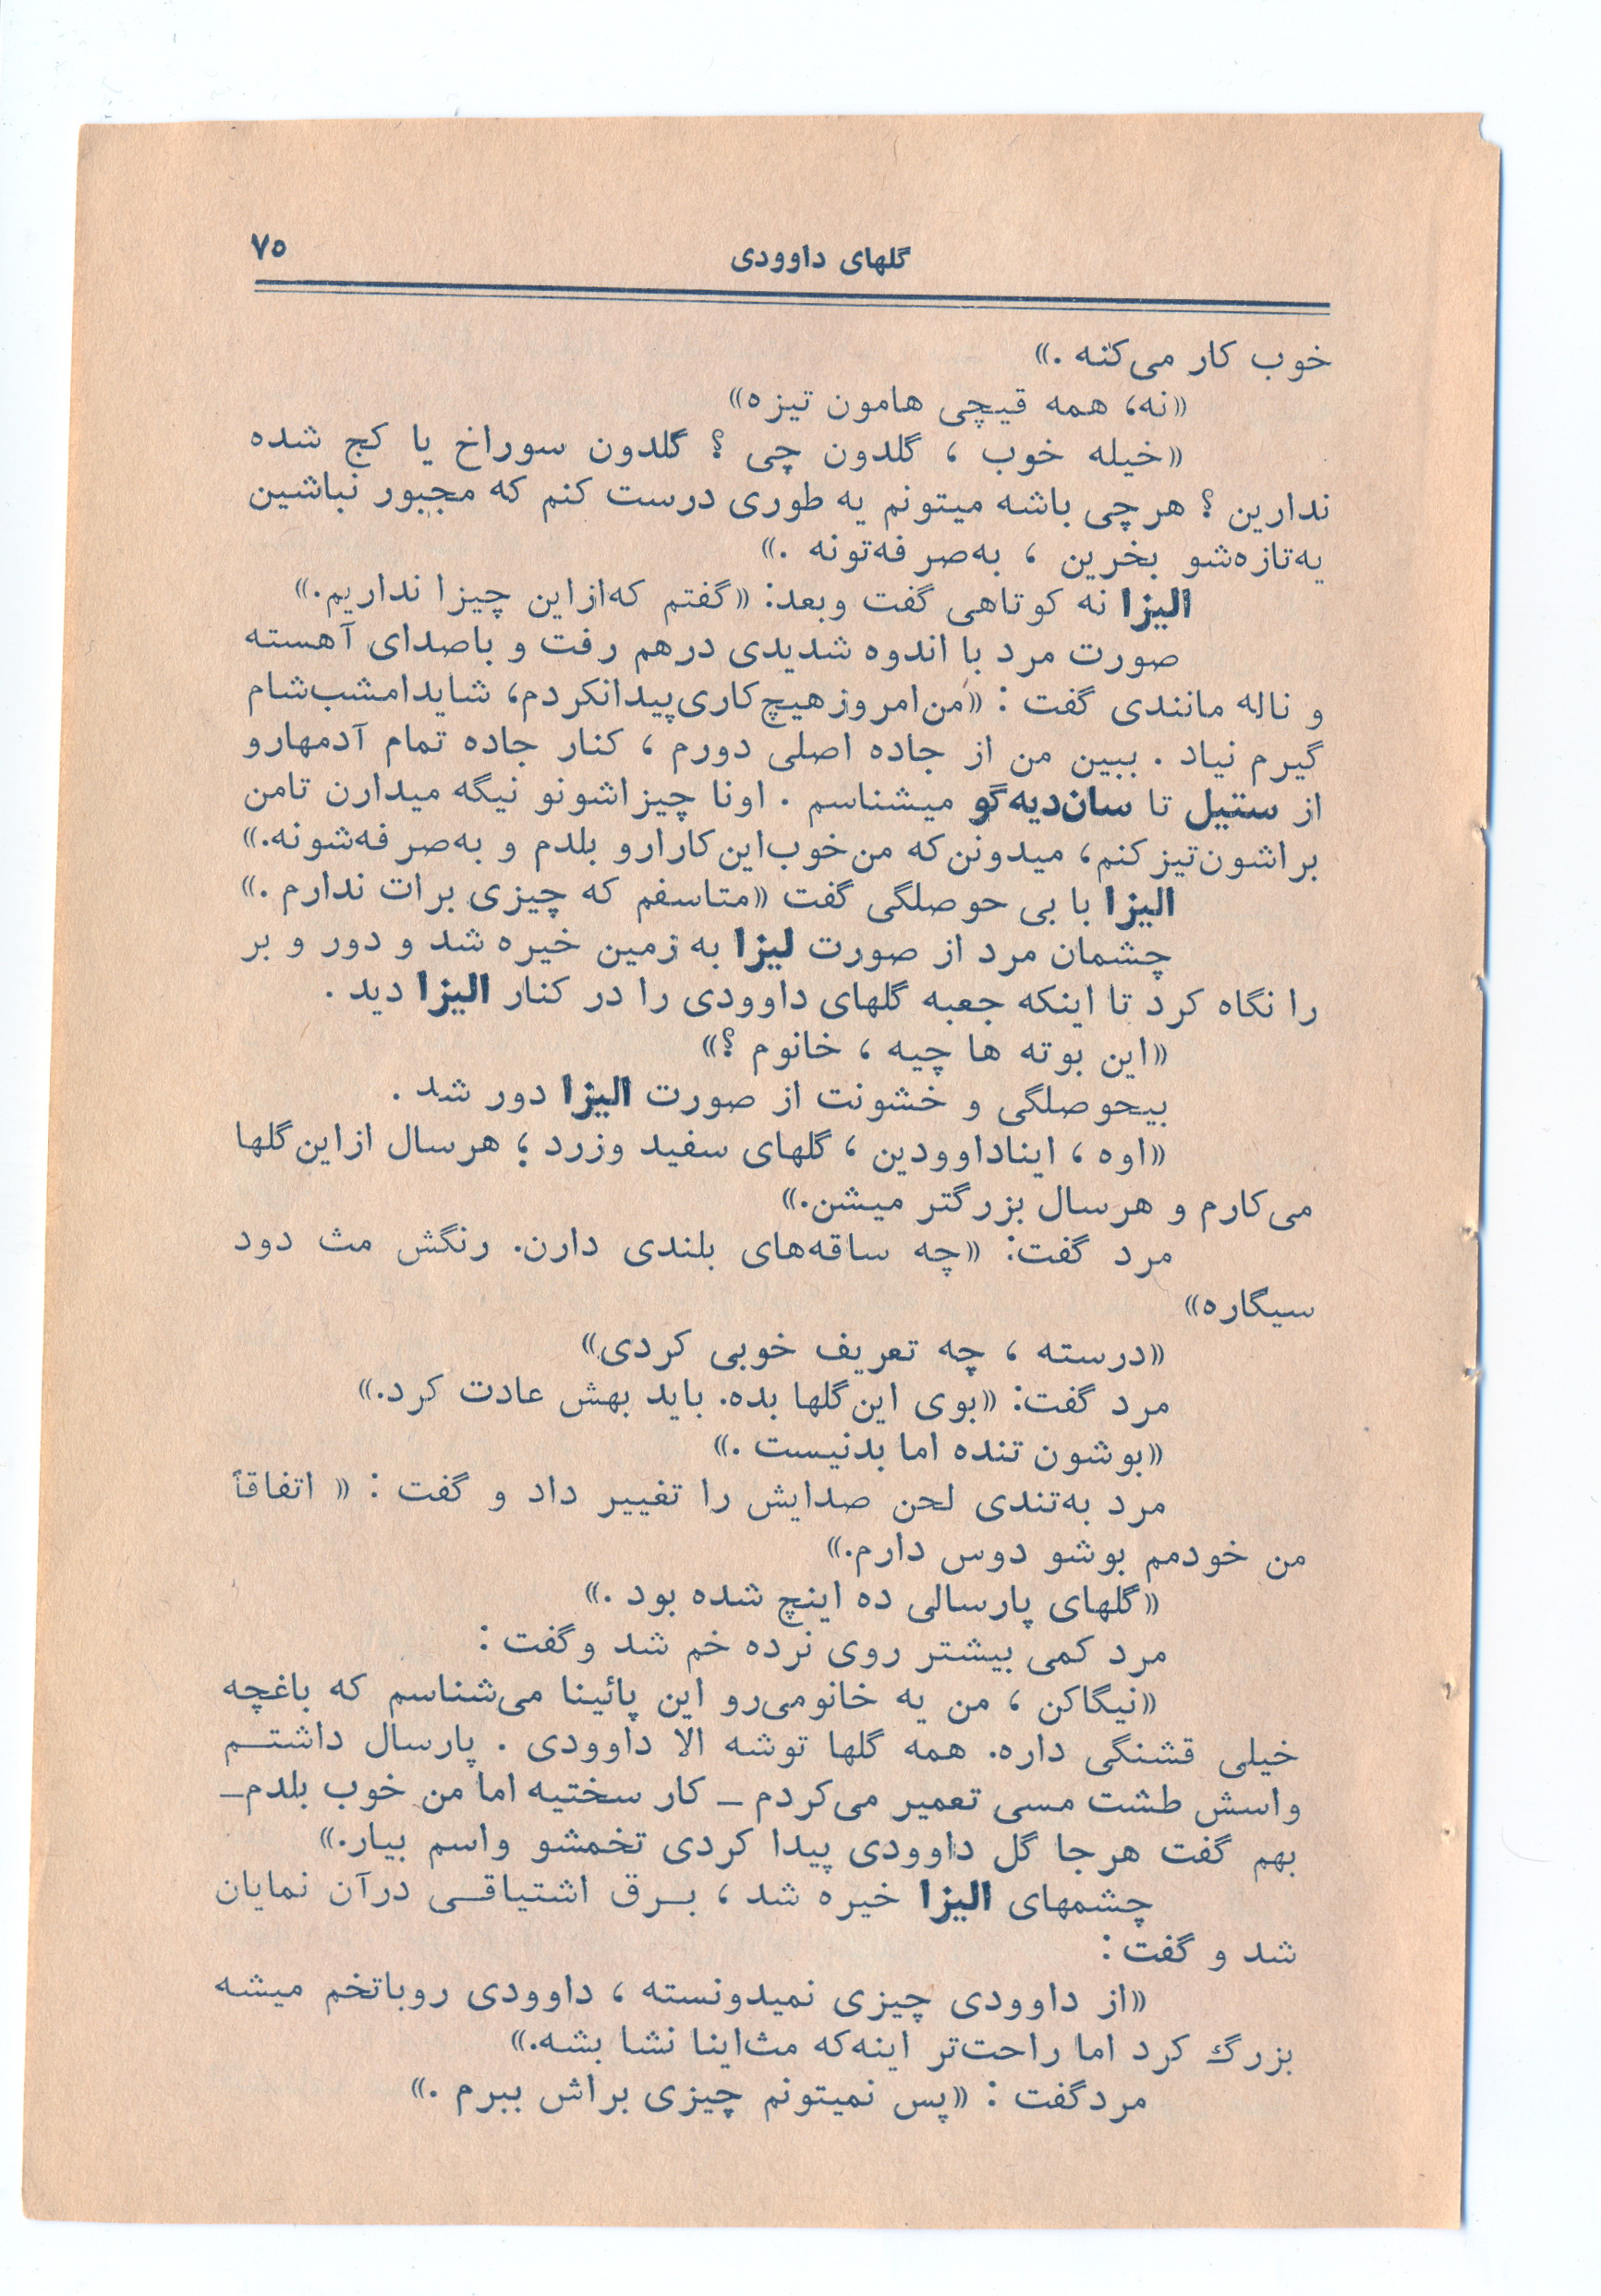 گلهای داوودی ۷۵
خوب کار می‌کنه .»
«نه، همه قیچی هامون تیزه»
«خیله خوب ، گلدون چی ؟ گلدون سوراخ یا کج شده
ندارین ؟ هرچی باشه میتونم یه طوری درست کنم که مجبور نباشین
یه‌تازه‌شو بخرین ، به‌صرفه‌تونه .»
الیزا نه کوتاهی گفت وبعد: «گفتم که‌ازاین چیزا نداریم.»
صورت مرد با اندوه شدیدی درهم رفت و باصدای آهسته
و ناله مانندی گفت : «من‌امروزهیچ‌کاری‌پیدانکردم، شایدامشب‌شام
گیرم نیاد . ببین من از جاده اصلی دورم ، کنار جاده تمام آدمهارو
از ستیل تا سان‌دیه‌گو میشناسم . اونا چیزاشونو نیگه میدارن تامن
براشون‌تیزکنم، میدونن‌که من‌خوب‌این‌کارارو بلدم و به‌صرفه‌شونه.»
الیزا با بی حوصلگی گفت «متاسفم که چیزی برات ندارم .»
چشمان مرد از صورت لیزا به زمین خیره شد و دور و بر
را نگاه کرد تا اینکه جعبه گلهای داوودی را در کنار الیزا دید .
«این بوته ها چیه ، خانوم ؟»
بیحوصلگی و خشونت از صورت الیزا دور شد .
«اوه ، ایناداوودین ، گلهای سفید وزرد ؛ هرسال ازاین‌گلها
می‌کارم و هرسال بزرگتر میشن.»
مرد گفت: «چه ساقه‌های بلندی دارن. رنگش مث دود
سیگاره»
«درسته ، چه تعریف خوبی کردی»
مرد گفت: «بوی این‌گلها بده. باید بهش عادت کرد.»
«بوشون تنده اما بدنیست .»
مرد به‌تندی لحن صدایش را تغییر داد و گفت : « اتفاقاً
من خودمم بوشو دوس دارم.»
«گلهای پارسالی ده اینچ شده بود .»
مرد کمی بیشتر روی نرده خم شد وگفت :
«نیگاکن ، من یه خانومی‌رو این پائینا می‌شناسم که باغچه
خیلی قشنگی داره. همه گلها توشه الا داوودی . پارسال داشتـم
واسش طشت مسی تعمیر می‌کردم – کار سختیه اما من خوب بلدم–
بهم گفت هرجا گل داوودی پیدا کردی تخمشو واسم بیار.»
چشمهای الیزا خیره شد ، بـرق اشتیاقـی درآن نمایان
شد و گفت :
«از داوودی چیزی نمیدونسته ، داوودی روباتخم میشه
بزرگ کرد اما راحت‌تر اینه‌که مث‌اینا نشا بشه.»
مردگفت : «پس نمیتونم چیزی براش ببرم .»